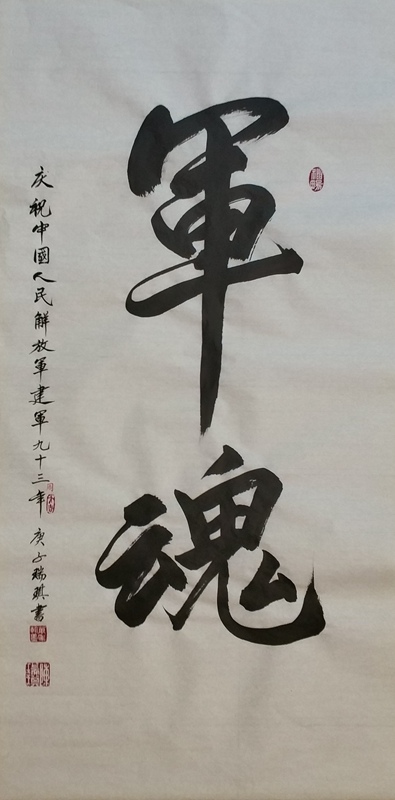 軍魂
庆祝中國人民解放軍建軍九十三年 庚子瑞琪書